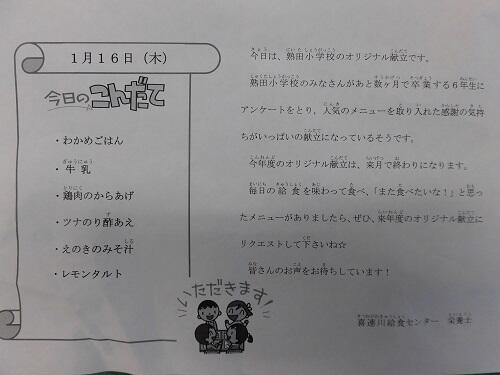 1月16日（木）
今日のこんだて
・わかめごはん
・牛乳
・鶏肉のからあげ
・ツナのり酢あえ
・えのきのみそ汁
・レモンタルト
いただきます！
今日は、熟田小学校のオリジナル献立です。
熟田小学校のみなさんがあと数ヶ月で卒業する６年生に
アンケートをとり、人気のメニューを取り入れた感謝の気持
ちがいっぱいの献立になっているそうです。
今年度のオリジナル献立は、来月で終わりになります。
毎日の給食を味わって食べ、「また食べたいな！」と思っ
たメニューがありましたら、ぜひ、来年度のオリジナル献立に
リクエストして下さいね☆
皆さんのお声をお待ちしています！
喜連川給食センター　栄養士